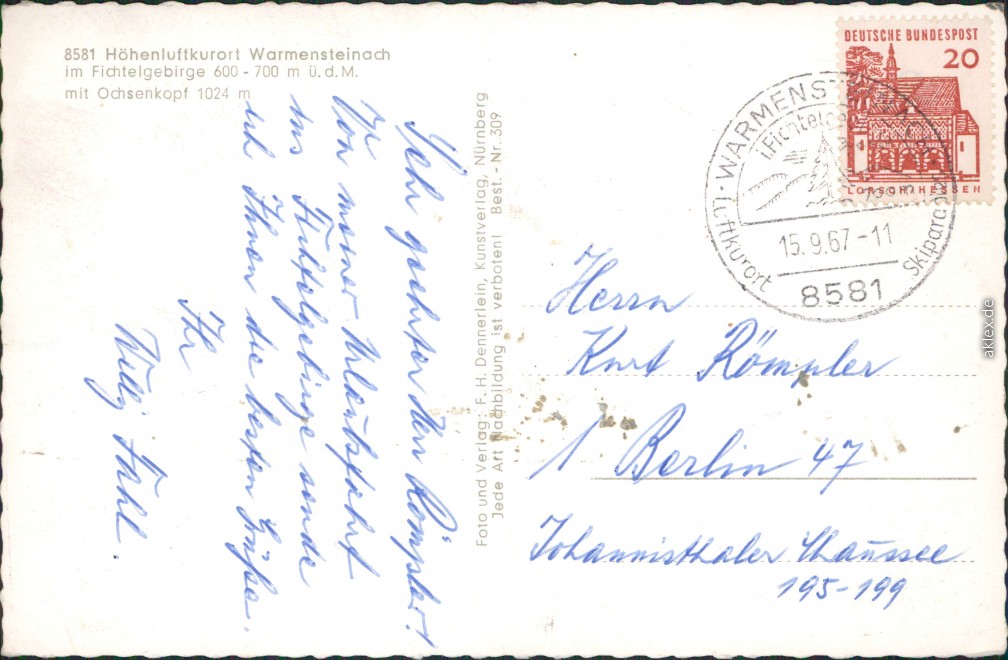 8581 Höhenluftkurort Warmensteinach
im Fichtelgebirge 600-700 m ü.d.M.
mit Ochsenkopf 1024 m
Sehr geehrter Herr Römpler!
Von meiner Urlaubsfahrt
ins Fichtelgebirge sende
ich Ihnen die besten Grüße.
Ihr
Willy Fahl.
Foto und Verlag: F. H. Dennerlein, Kunstverlag, Nürnberg
Jede Art Nachbildung ist verboten! Best.-Nr. 309
DEUTSCHE BUNDESPOST
20
LORSCH/HESSEN
WARMENS
i.Fichtelge
Luftkurort
Skipara
15.9.67-11
8581
Herrn
Kurt Römpler
1 Berlin 47
Johannisthaler Chaussee
195-199
aklex.de